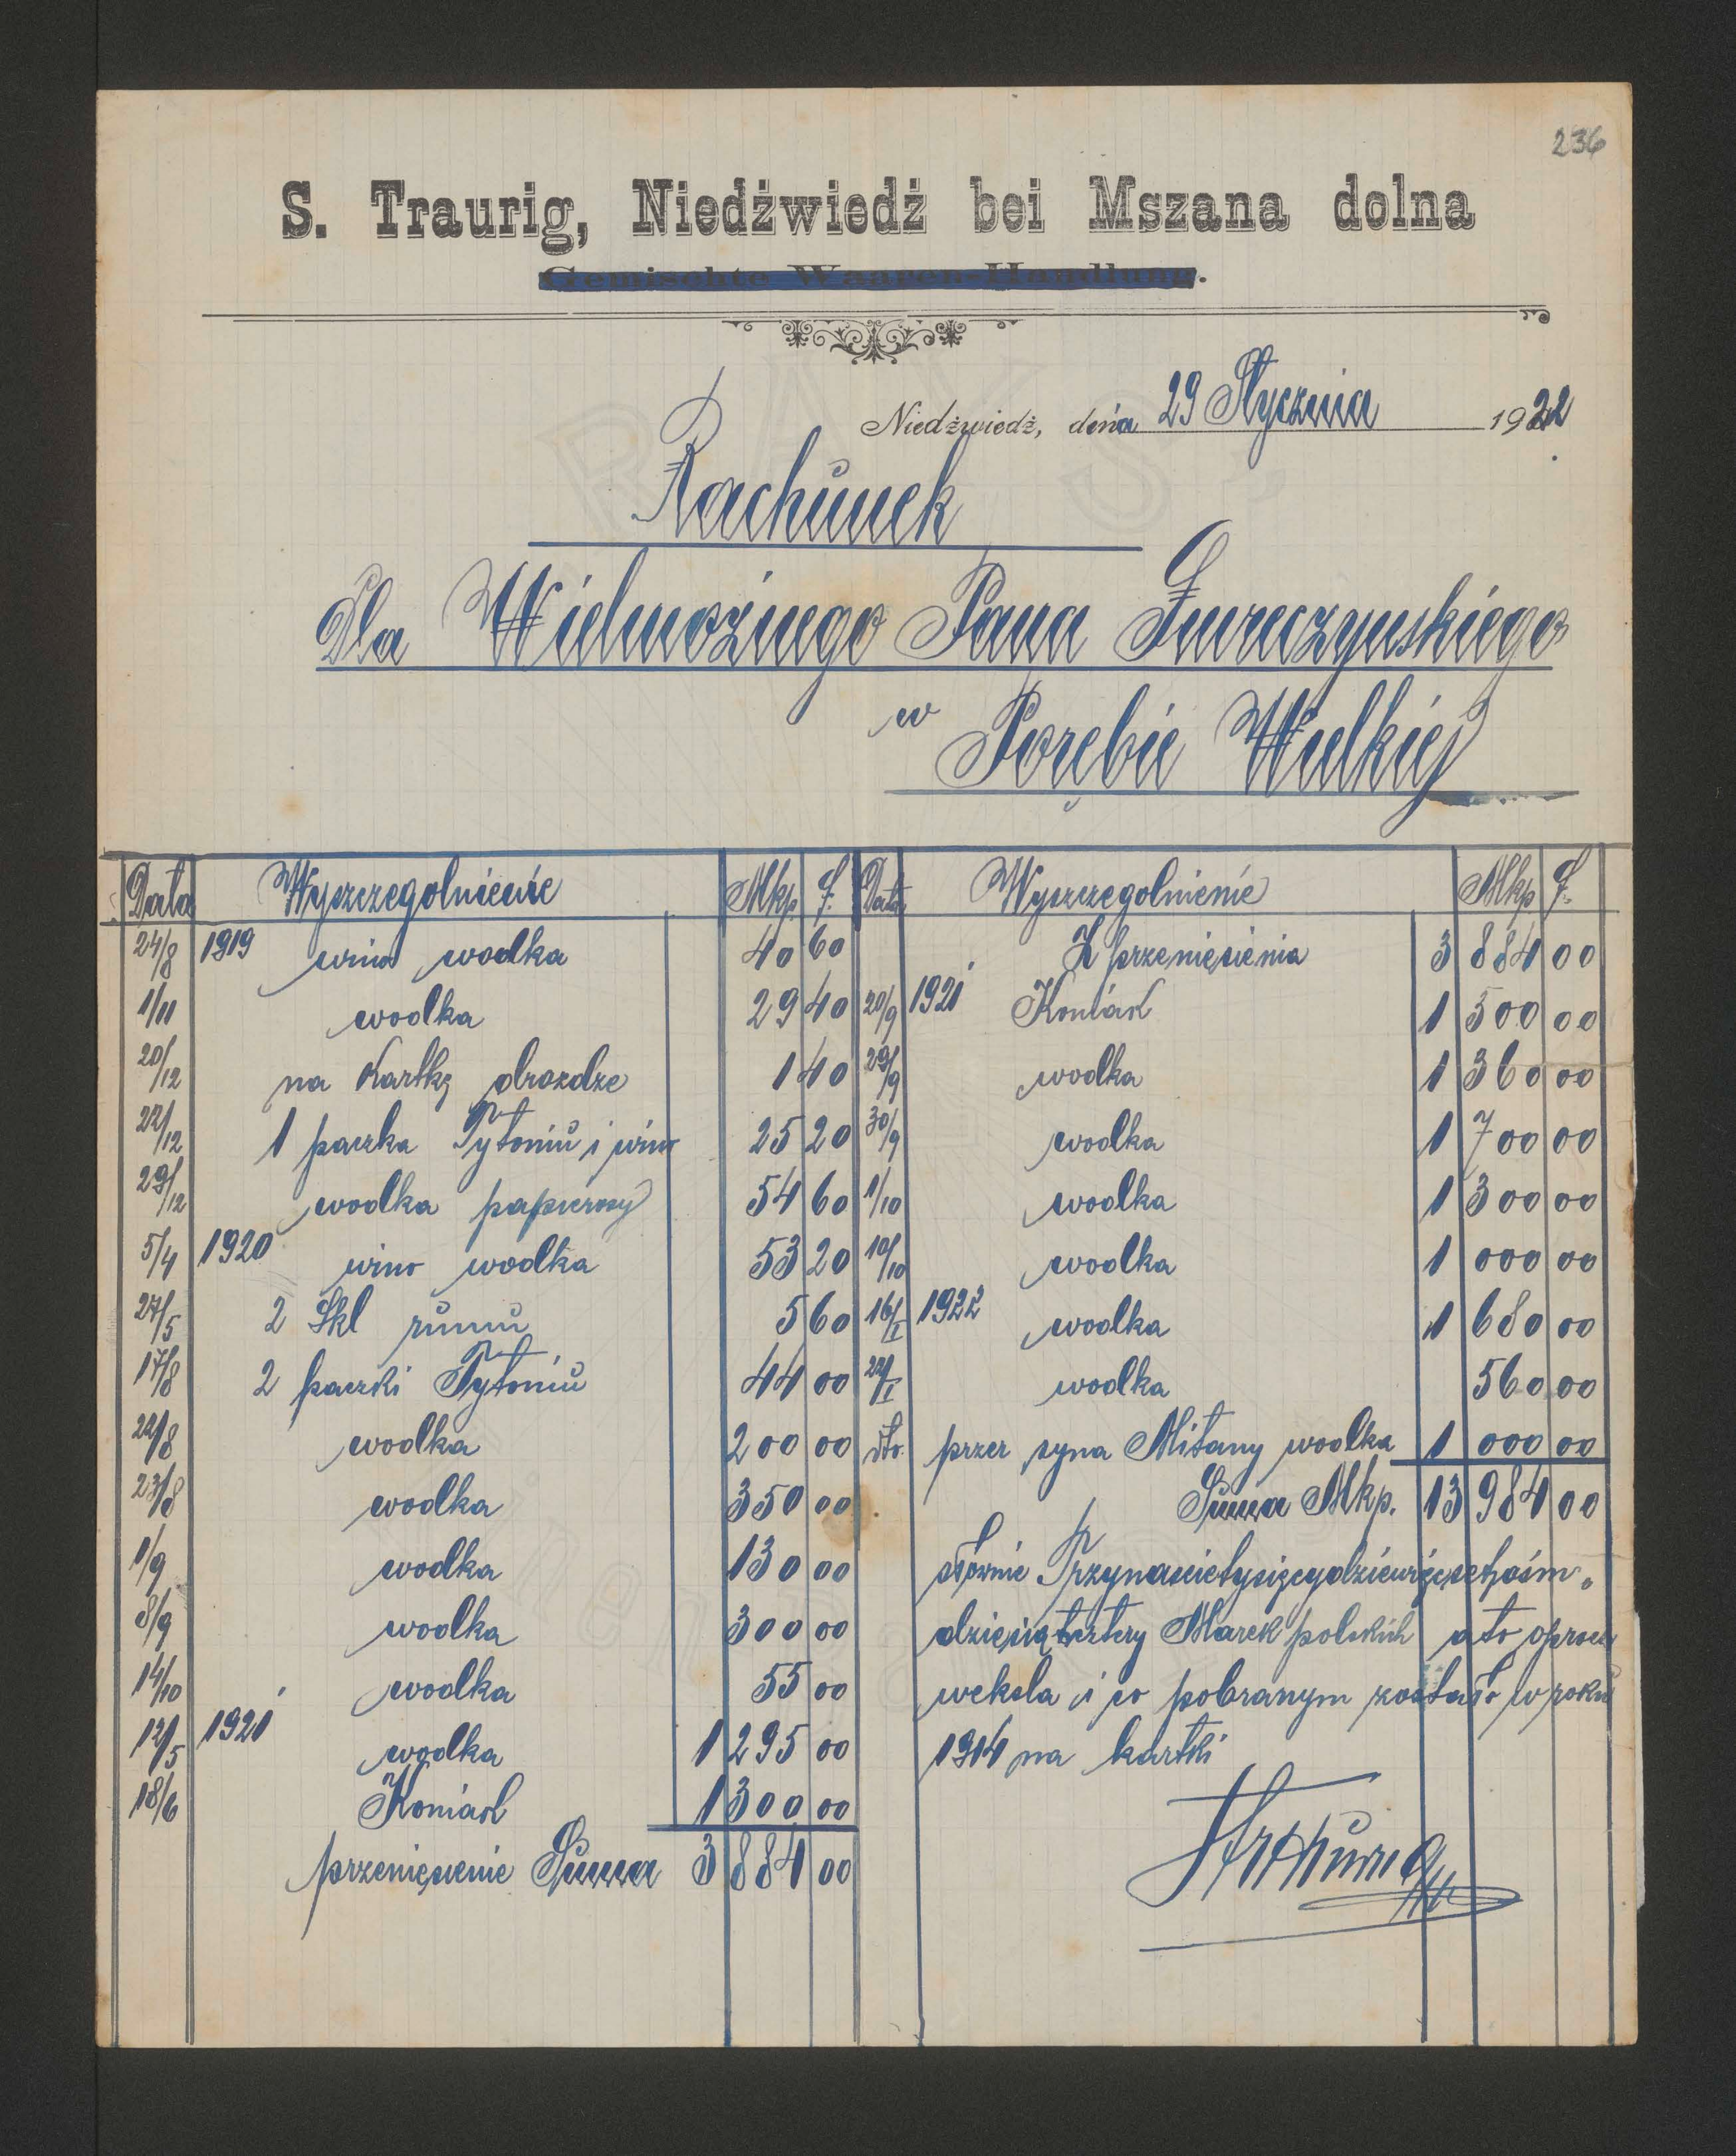 236
S. Traurig, Niedżwiedż bei Mszana dolna
Gemischte Waaren-Handlung.
Niedżwiedż, dnia 29 Stycznia 1922
Rachunek
Dla Wielmożnego Pana
w Porębie Wielkiej
Data Wyszczegolnienie Mkp f.
24/8 1919 wino wodka 40 60
1/11 wodka 29 40
20/12 na Kartkę drozdze 1 40
22/12 1 paczka Tytoniu i wino 25 20
29/12 wodka papierosy 54 60
5/4 1920 wino wodka 53 20
27/5 2 Skl rumu 5 60
17/8 2 paczki Tytoniu 44 00
22/8 wodka 200 00
23/8 wodka 350 00
1/9 wodka 130 00
8/9 wodka 300 00
14/10 wodka 55 00
12/5 1921 wodka 1 295 00
18/6 Koniak 1 300 00
przeniesienie Suma 3 884 00
Data Wyszczegolnienie Mkp f.
Z przeniesienia 3 884 00
20/9 1921 Koniak 1 500 00
29/9 wodka 1 360 00
30/9 wodka 1 700 00
1/10 wodka 1 300 00
10/10 wodka 1 000 00
16/I 1922 wodka 1 680 00
22/I wodka 560 00
dto. przez syna Mitany wodka 1 000 00
Suma Mkp. 13 984 00
słownie Trzynascietysięcydziewięcsetośm-
dziesiątcztery Marek polskich a to oprocz
weksla i co pobranym zostało w roku
1914 na kartki